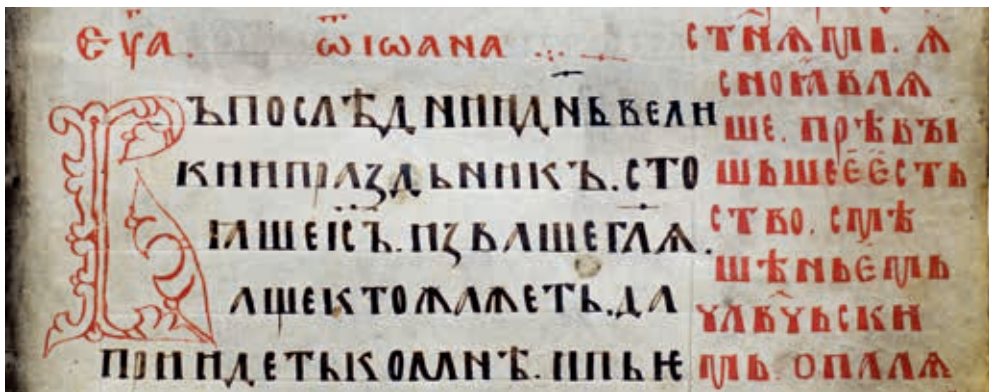 еѵⷢ҇а . ѿ іѡана ...
Въпослѣдниидн҃ьвели
киипраздьникъ.сто
ꙗшеіс҃ъ.извашегл҃ѧ.
ащектожѧжеть.да
приидетькомнѣ.ипьѥ
стн҃ѧми. ѧ
сномꙗвлѧ
ше. прѣвъі
шьшееестъ
ство. смѣ
шѣньемь
члв҃чьски
мь. опалѧ